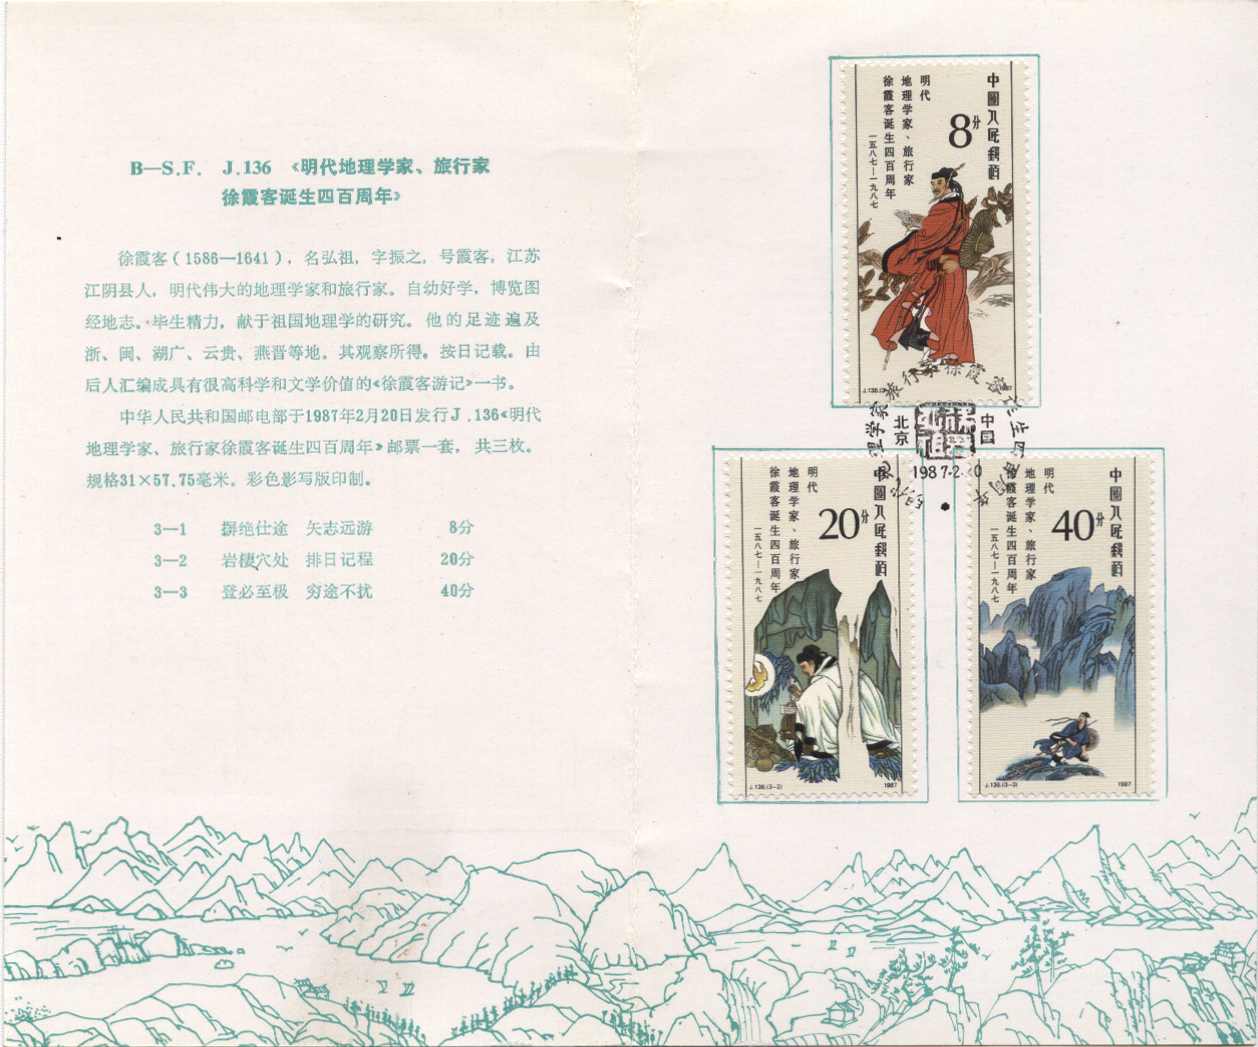 B—S.F. J.136 《明代地理学家、旅行家
徐霞客诞生四百周年》
徐霞客(1586—1641),名弘祖,字振之,号霞客,江苏
江阴县人,明代伟大的地理学家和旅行家。自幼好学,博览图
经地志。毕生精力,献于祖国地理学的研究。他的足迹遍及
浙、闽、湖广、云贵、燕晋等地。其观察所得。按日记载。由
后人汇编成具有很高科学和文学价值的《徐霞客游记》一书。
中华人民共和国邮电部于1987年2月20日发行J.136《明代
地理学家、旅行家徐霞客诞生四百周年》邮票一套,共三枚。
规格31×57.75毫米。彩色影写版印制。
3—1 摒绝仕途 矢志远游 8分
3—2 岩棲穴处 排日记程 20分
3—3 登必至极 穷途不扰 40分
中國人民郵政
8分
明代
地理学家、旅行家
徐霞客诞生四百周年
一五八七—一九八七
北京
中国
1987.2.20
中國人民郵政
20分
明代
地理学家、旅行家
徐霞客诞生四百周年
一五八七—一九八七
J.136.(3-2)
1987
中國人民郵政
40分
明代
地理学家、旅行家
徐霞客诞生四百周年
一五八七—一九八七
J.136.(3-3)
1987